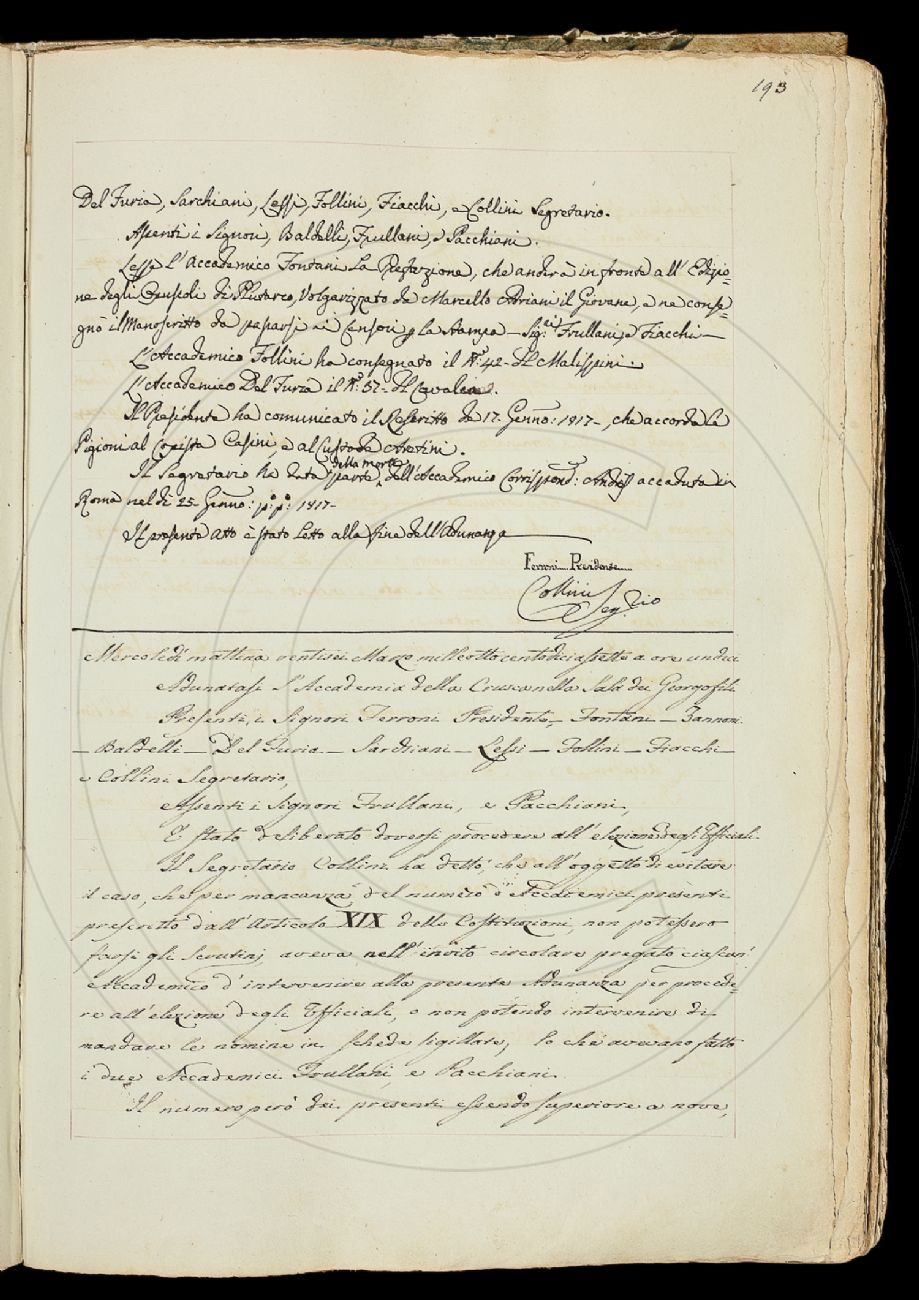 193
Del Furia, Sarchiani, Lessi, Follini, Fiacchi, e Collini Segretario.
Assenti i Signori, Baldelli, Frullani, e Pacchiani.
Lesse l'Accademico Fontani la Prefazione, che anderà in fronte all'Edizio=
ne degli Opuscoli di Plutarco, Volgarizzato da Marcello Adriani il Giovane, e ne conse=
gnò il Manoscritto da passarsi ai Censori p la Stampa — Sig.ri Frullani, e Fiacchi —
L'Accademico Follini ha consegnato il N.º 42 - Il Malispini.
L'Accademico Del Furia il N.º 57 - Il Cavalca.
Il Presidente ha comunicato il Rescritto de 17. Genn: 1817 -, che accorda la
Pigioni al Copista Casini, e al Custode Aretini.
Il Segretario ha data parte della morte dell'Accademico Corrispond: Andes accaduta in
Roma nel dì 25. Genn: p:º p:º 1817 -
Il presente Atto è stato letto alla fine dell'Adunanza
Ferroni Presidente
Collini Seg.rio
Mercoledì mattina ventisei Marzo milleottocentodiciassette a ore undici
Adunatasi l'Accademia della Crusca nella Sala dei Georgofili
Presenti, i Signori Ferroni Presidente, — Fontani — Zannoni
— Baldelli — Del Furia — Sarchiani — Lessi — Follini — Fiacchi —
e Collini Segretario,
Assenti i Signori Frullani, e Pacchiani,
E' stato deliberato doversi procedere all'elezione degli Effiziali.
Il Segretario Collini ha detto, che all'oggetto di evitare
il caso, che per mancanza del numero d'Accademici presenti
prescritto dall'Articolo XIX delle Costituzioni, non potessero
farsi gli Scrutinj aveva nell'invito circolare pregato ciascun
Accademico d'intervenire alla presente Adunanza per procede=
re all'elezione degli Effiziali, o non potendo intervenire di
mandare le nomine in schede sigillate, lo che avevano fatto
i due Accademici Frullani, e Pacchiani.
Il numero però dei presenti essendo superiore a nove,